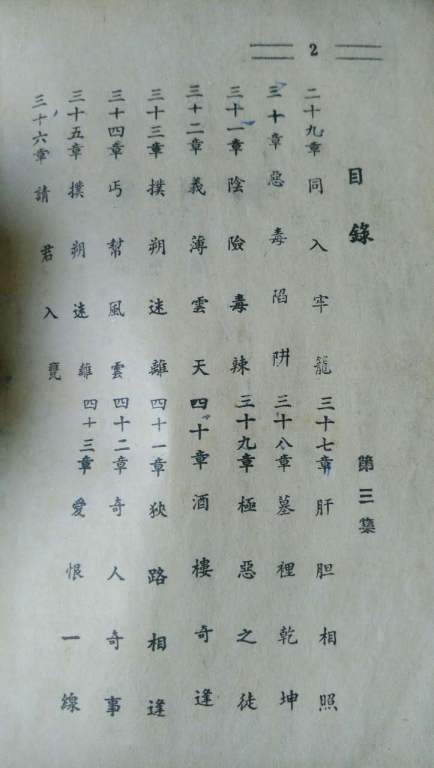 2
目錄
第三集
二十九章 同入牢籠
三十章 惡毒陷阱
三十一章 陰險毒辣
三十二章 義薄雲天
三十三章 撲朔迷離
三十四章 丐幫風雲
三十五章 撲朔迷離
三十六章 請君入甕
三十七章 肝胆相照
三十八章 墓裡乾坤
三十九章 極惡之徒
四十章 酒樓奇逢
四十一章 狹路相逢
四十二章 奇人奇事
四十三章 愛恨一線